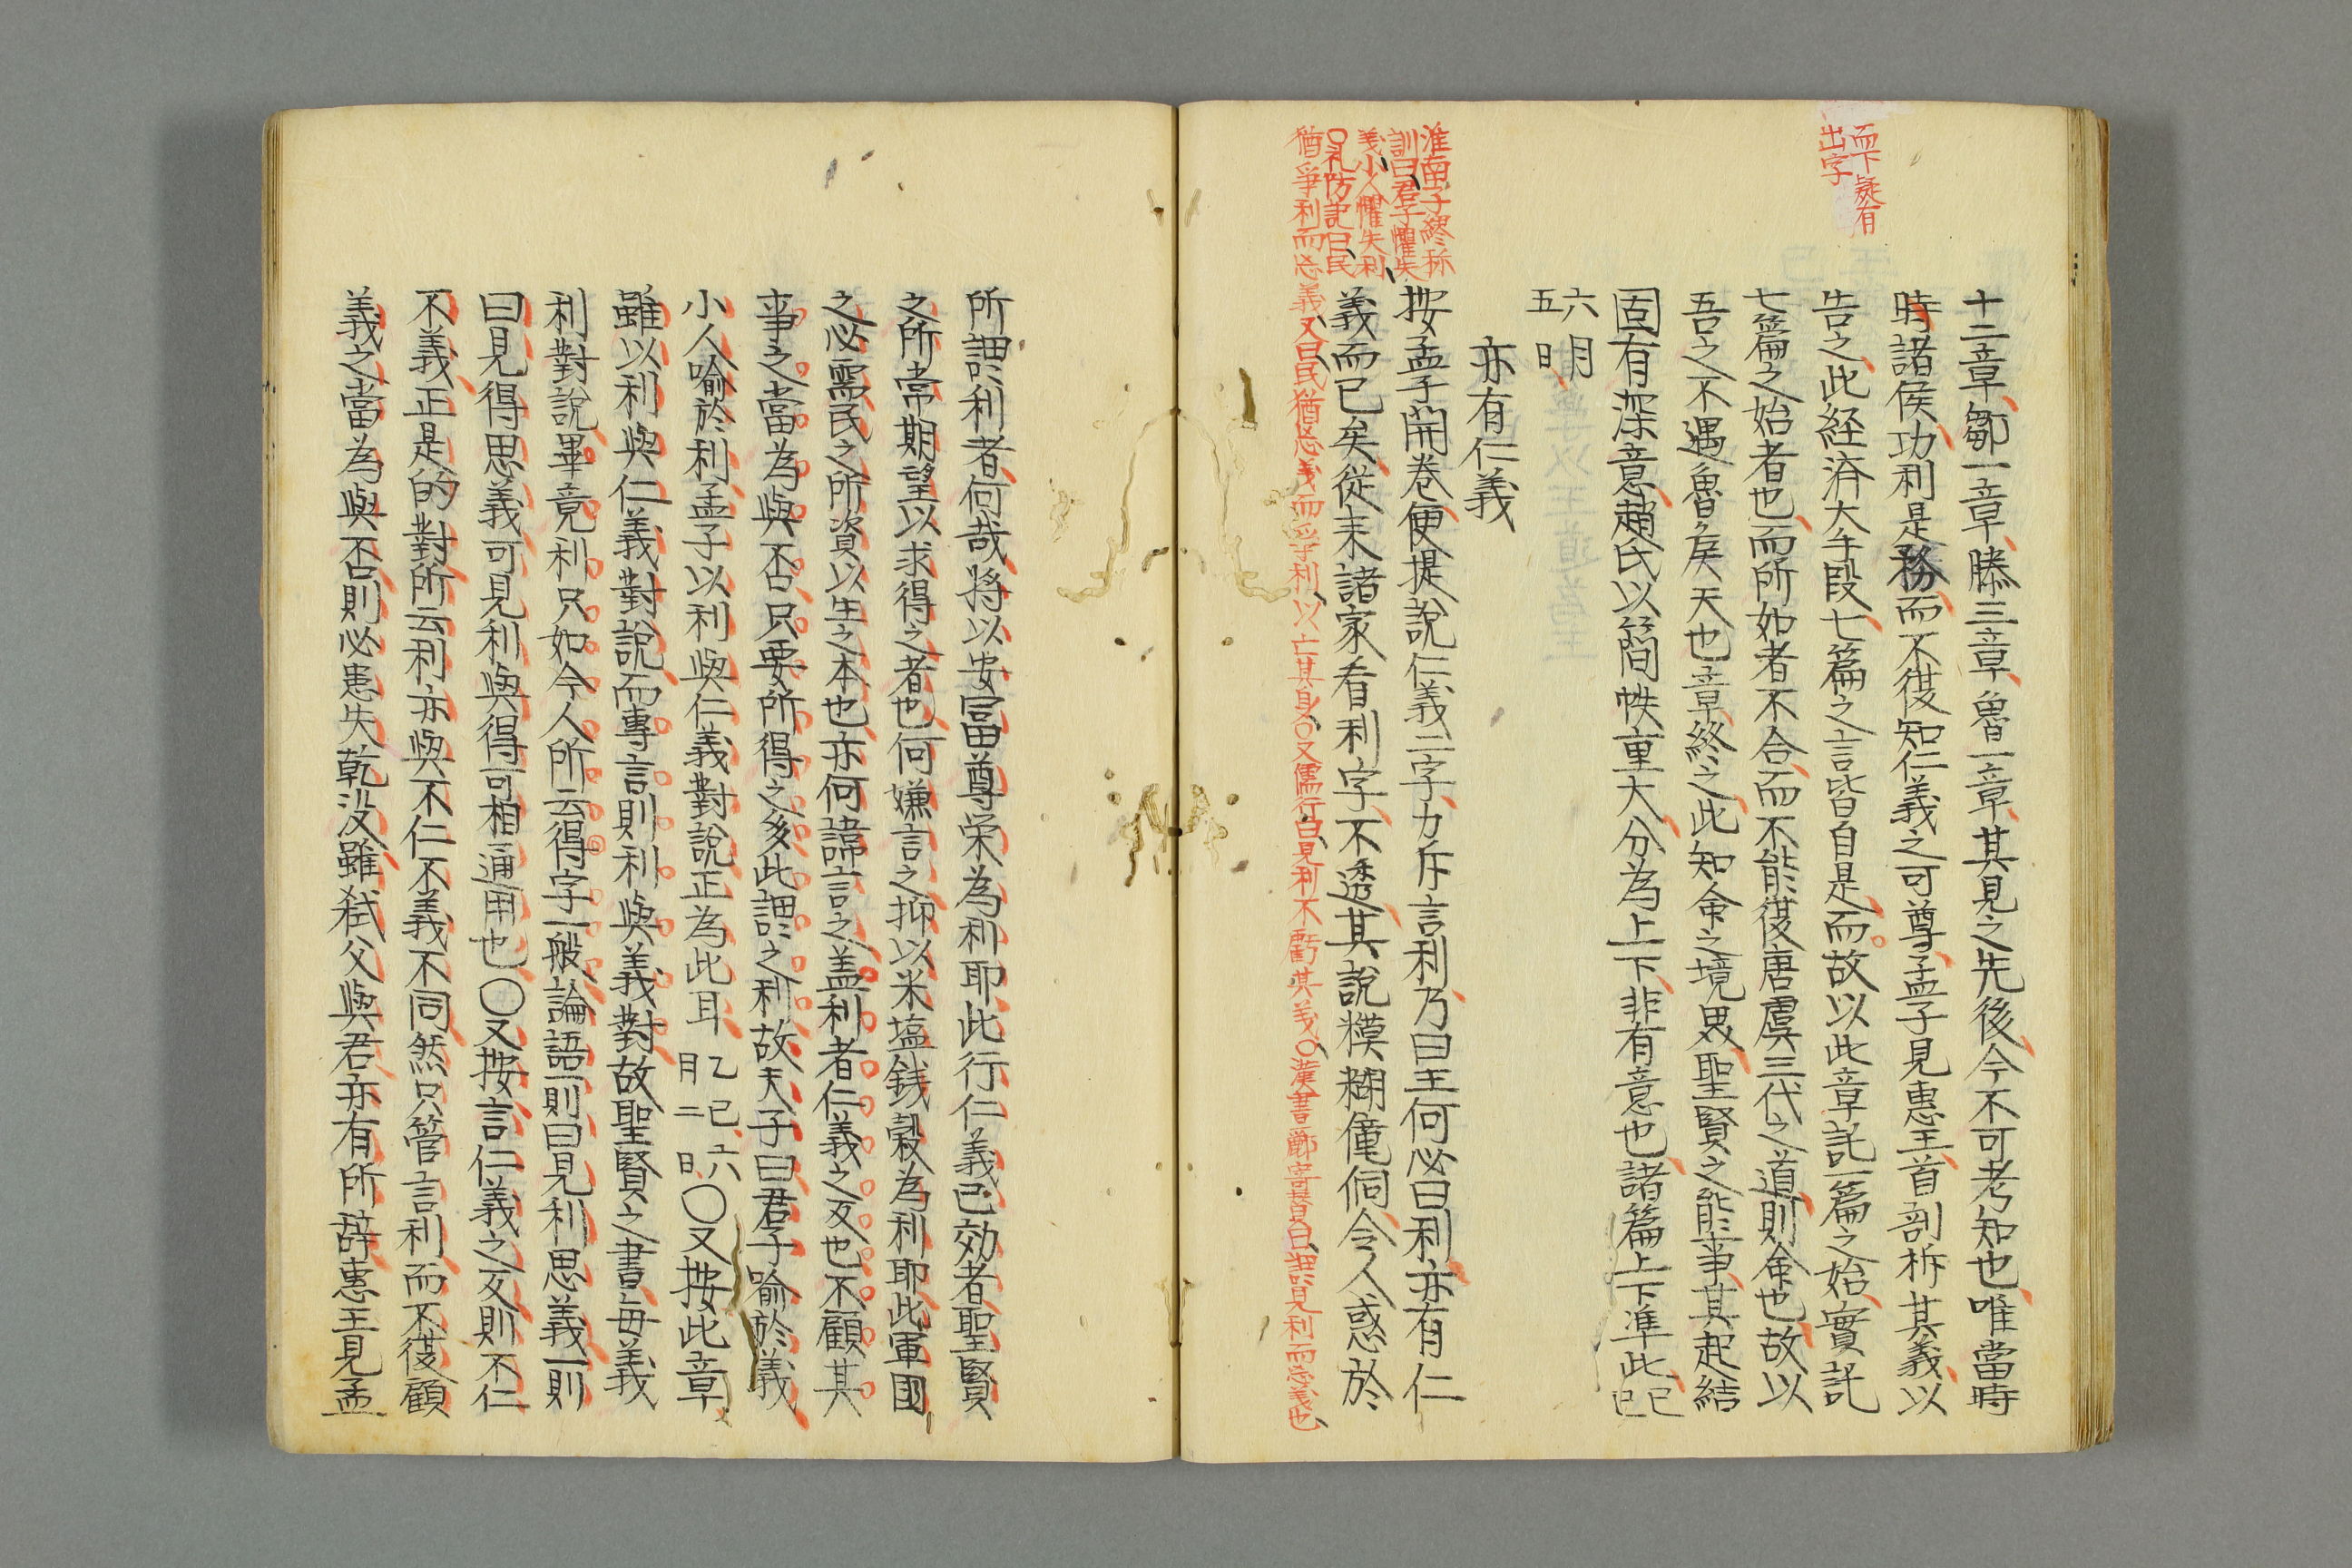 而下疑有
出字
十二章鄒一章滕三章魯一章其見之先後今不可考知也唯當時
時諸侯功利是務而不復知仁義之可尊孟子見惠王首剖柝其義以
告之此経済大手段七篇之言皆自是而故以此章託一篇之始實託
七篇之始者也而所如者不合而不能復唐虞三代之道則命也故以
吾之不遇魯矦天也章終之此知命之境異聖賢之能事其起結
固有深意趙氏以簡帙重大分為上下非有意也諸篇上下準此己巳
六月
五日
亦有仁義
按孟子開卷便提説仁義二字力斥言利乃曰王何必曰利亦有仁
義而已矣從来諸家看利字不透其説糢糊儱侗令人惑於
淮南子繆称
訓曰君子懼失
義小人懼失利
○礼防記曰民
猶爭利而忘義又曰民猶忘義而爭利以亡其身○又儒行曰見利不虧其義○漢書酈寄賛曰謂見利而忘義也
所謂利者何哉将以安冨尊栄為利耶此行仁義已効者聖賢
之所常期望以求得之者也何嫌言之抑以米塩銭穀為利耶此軍國
之必需民之所資以生之本也亦何諱言之盖利者仁義之反也不顧其
事之當為與不只要所得之多此謂之利故夫子曰君子喩於義
小人喩於利孟子以利與仁義對説正為此耳 乙巳六月二日 ○又按此章
雖以利與仁義對説而專言則利與義對故聖賢之書毎義
利對説畢竟利只如今人所云得字一般論語一則曰見利思義一則
曰見得思義可見利與得可相通用也○又按言仁義之反則不仁
不義正是的對所云利亦與不仁不義不同然只管言利而不復顧
義之當為與不則必患失乾没雖弑父與君亦有所辞惠王見孟